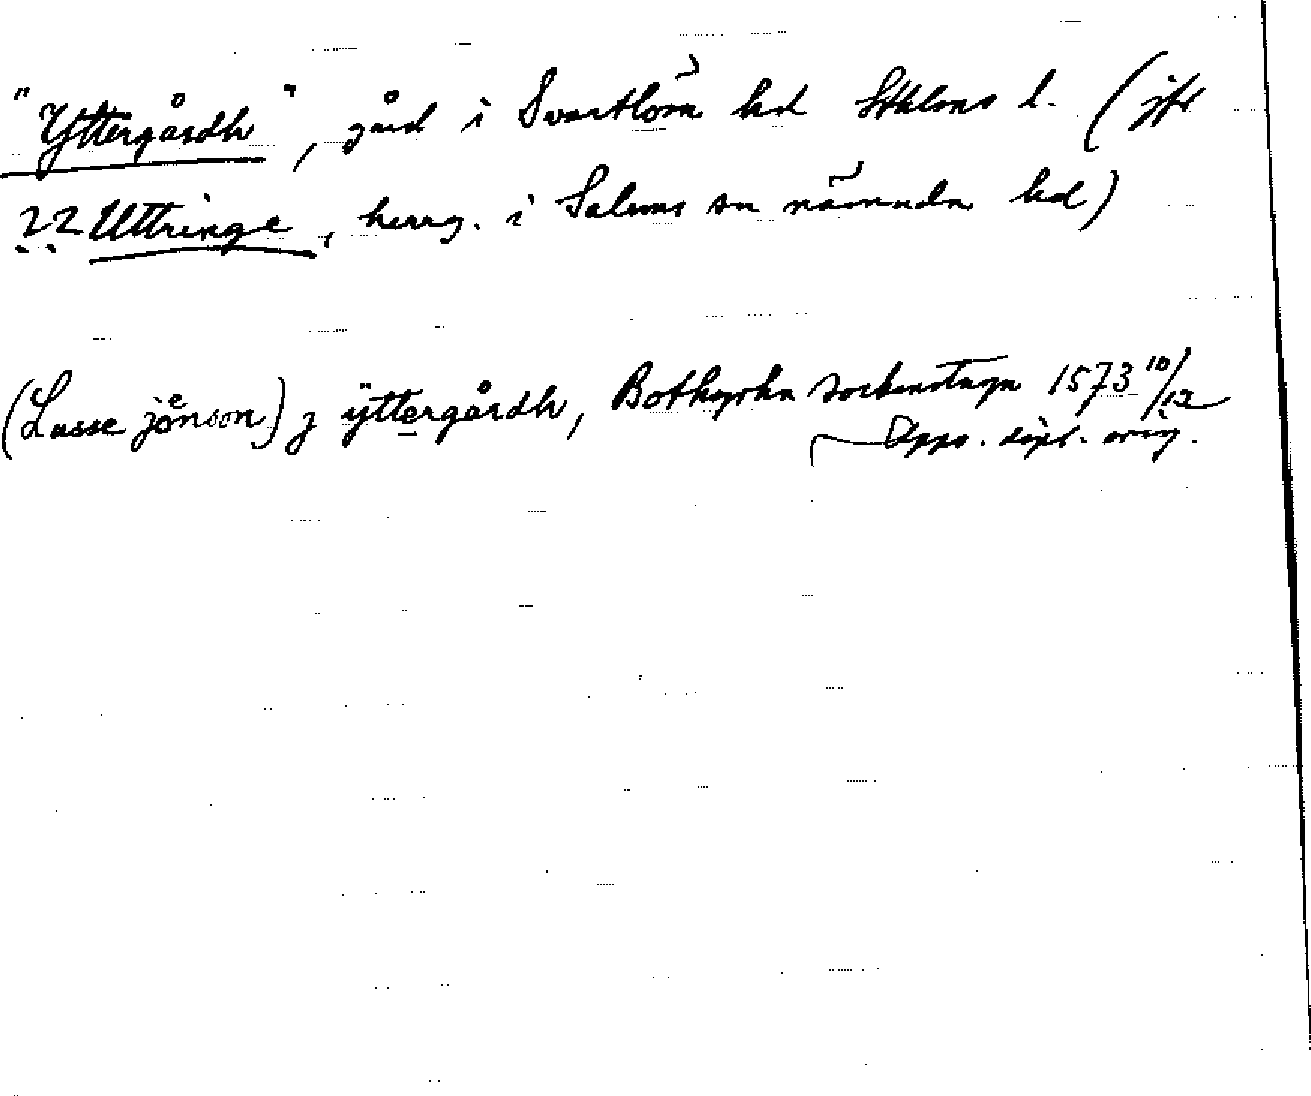 "Yttergårdh", gård i Svartlösa hd Sthlms l. (jfr
?? Uttringe, herrg. i Salems sn nämnda hd)
(Lasse jönson) j ÿttergårdh, Botkyrka sockenstuga 1573 10/12
Upps. dipl. orig.